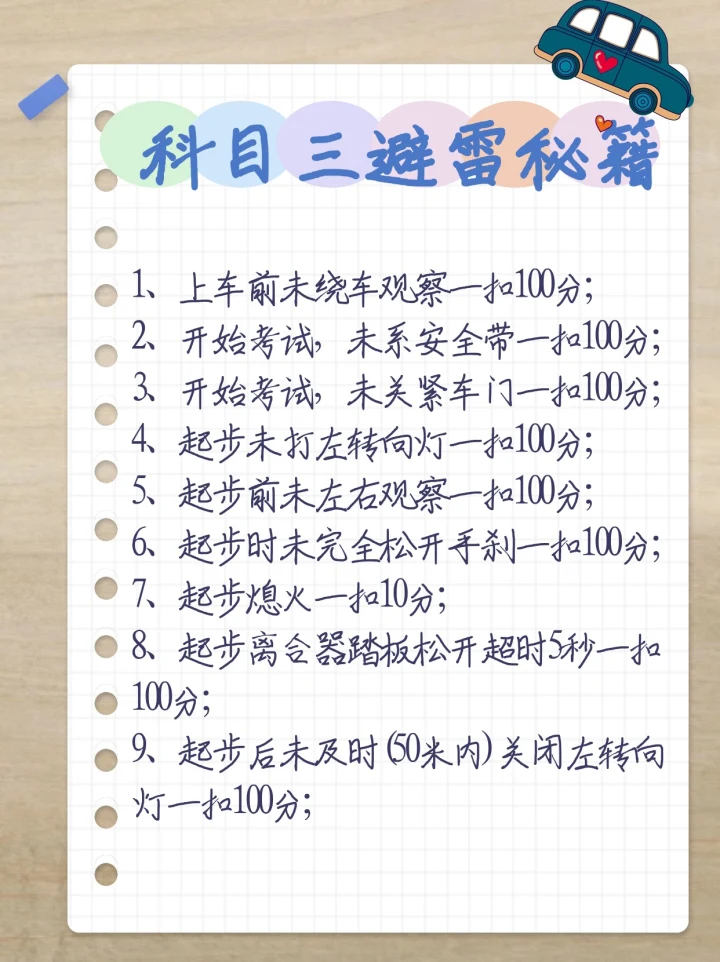 科目三避雷秘籍
1、上车前未绕车观察一扣100分;
2、开始考试, 未系安全带一扣100分;
3、开始考试, 未关紧车门一扣100分;
4、起步未打左转向灯一扣100分;
5、起步前未左右观察一扣100分;
6、起步时未完全松开手刹一扣100分;
7、起步熄火一扣10分;
8、起步离合器踏板松开超时5秒一扣
100分;
9、起步后未及时(50米内)关闭左转向
灯一扣100分;